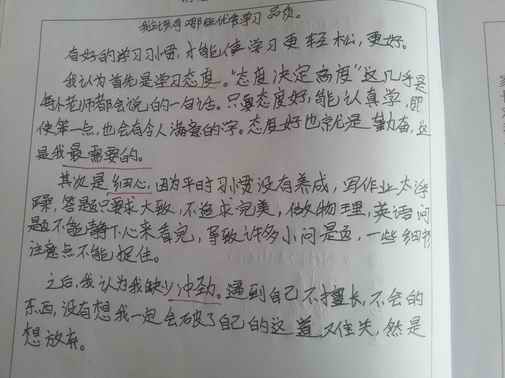 我认为有哪些优良学习品质。
有好的学习习惯,才能使学习更轻松,更好。
我认为首先是学习态度。"态度决定高度"这几乎是
每个老师都会说的一句话。只要态度好,能认真学,即
使笨一点,也会有令人满意的学。态度好也就是勤奋,这
是我最需要的。
其次是细心,因为平时习惯没有养成,写作业太浮
躁,答题只要求大致,不追求完美,做物理,英语问
题不能静下心来看完,导致许多小问题,一些细节
注意点不能抓住。
之后,我认为我缺少冲劲。遇到自己不擅长,不会的
东西,没有想我一定会破了自己的这道难关,然是
想放弃。